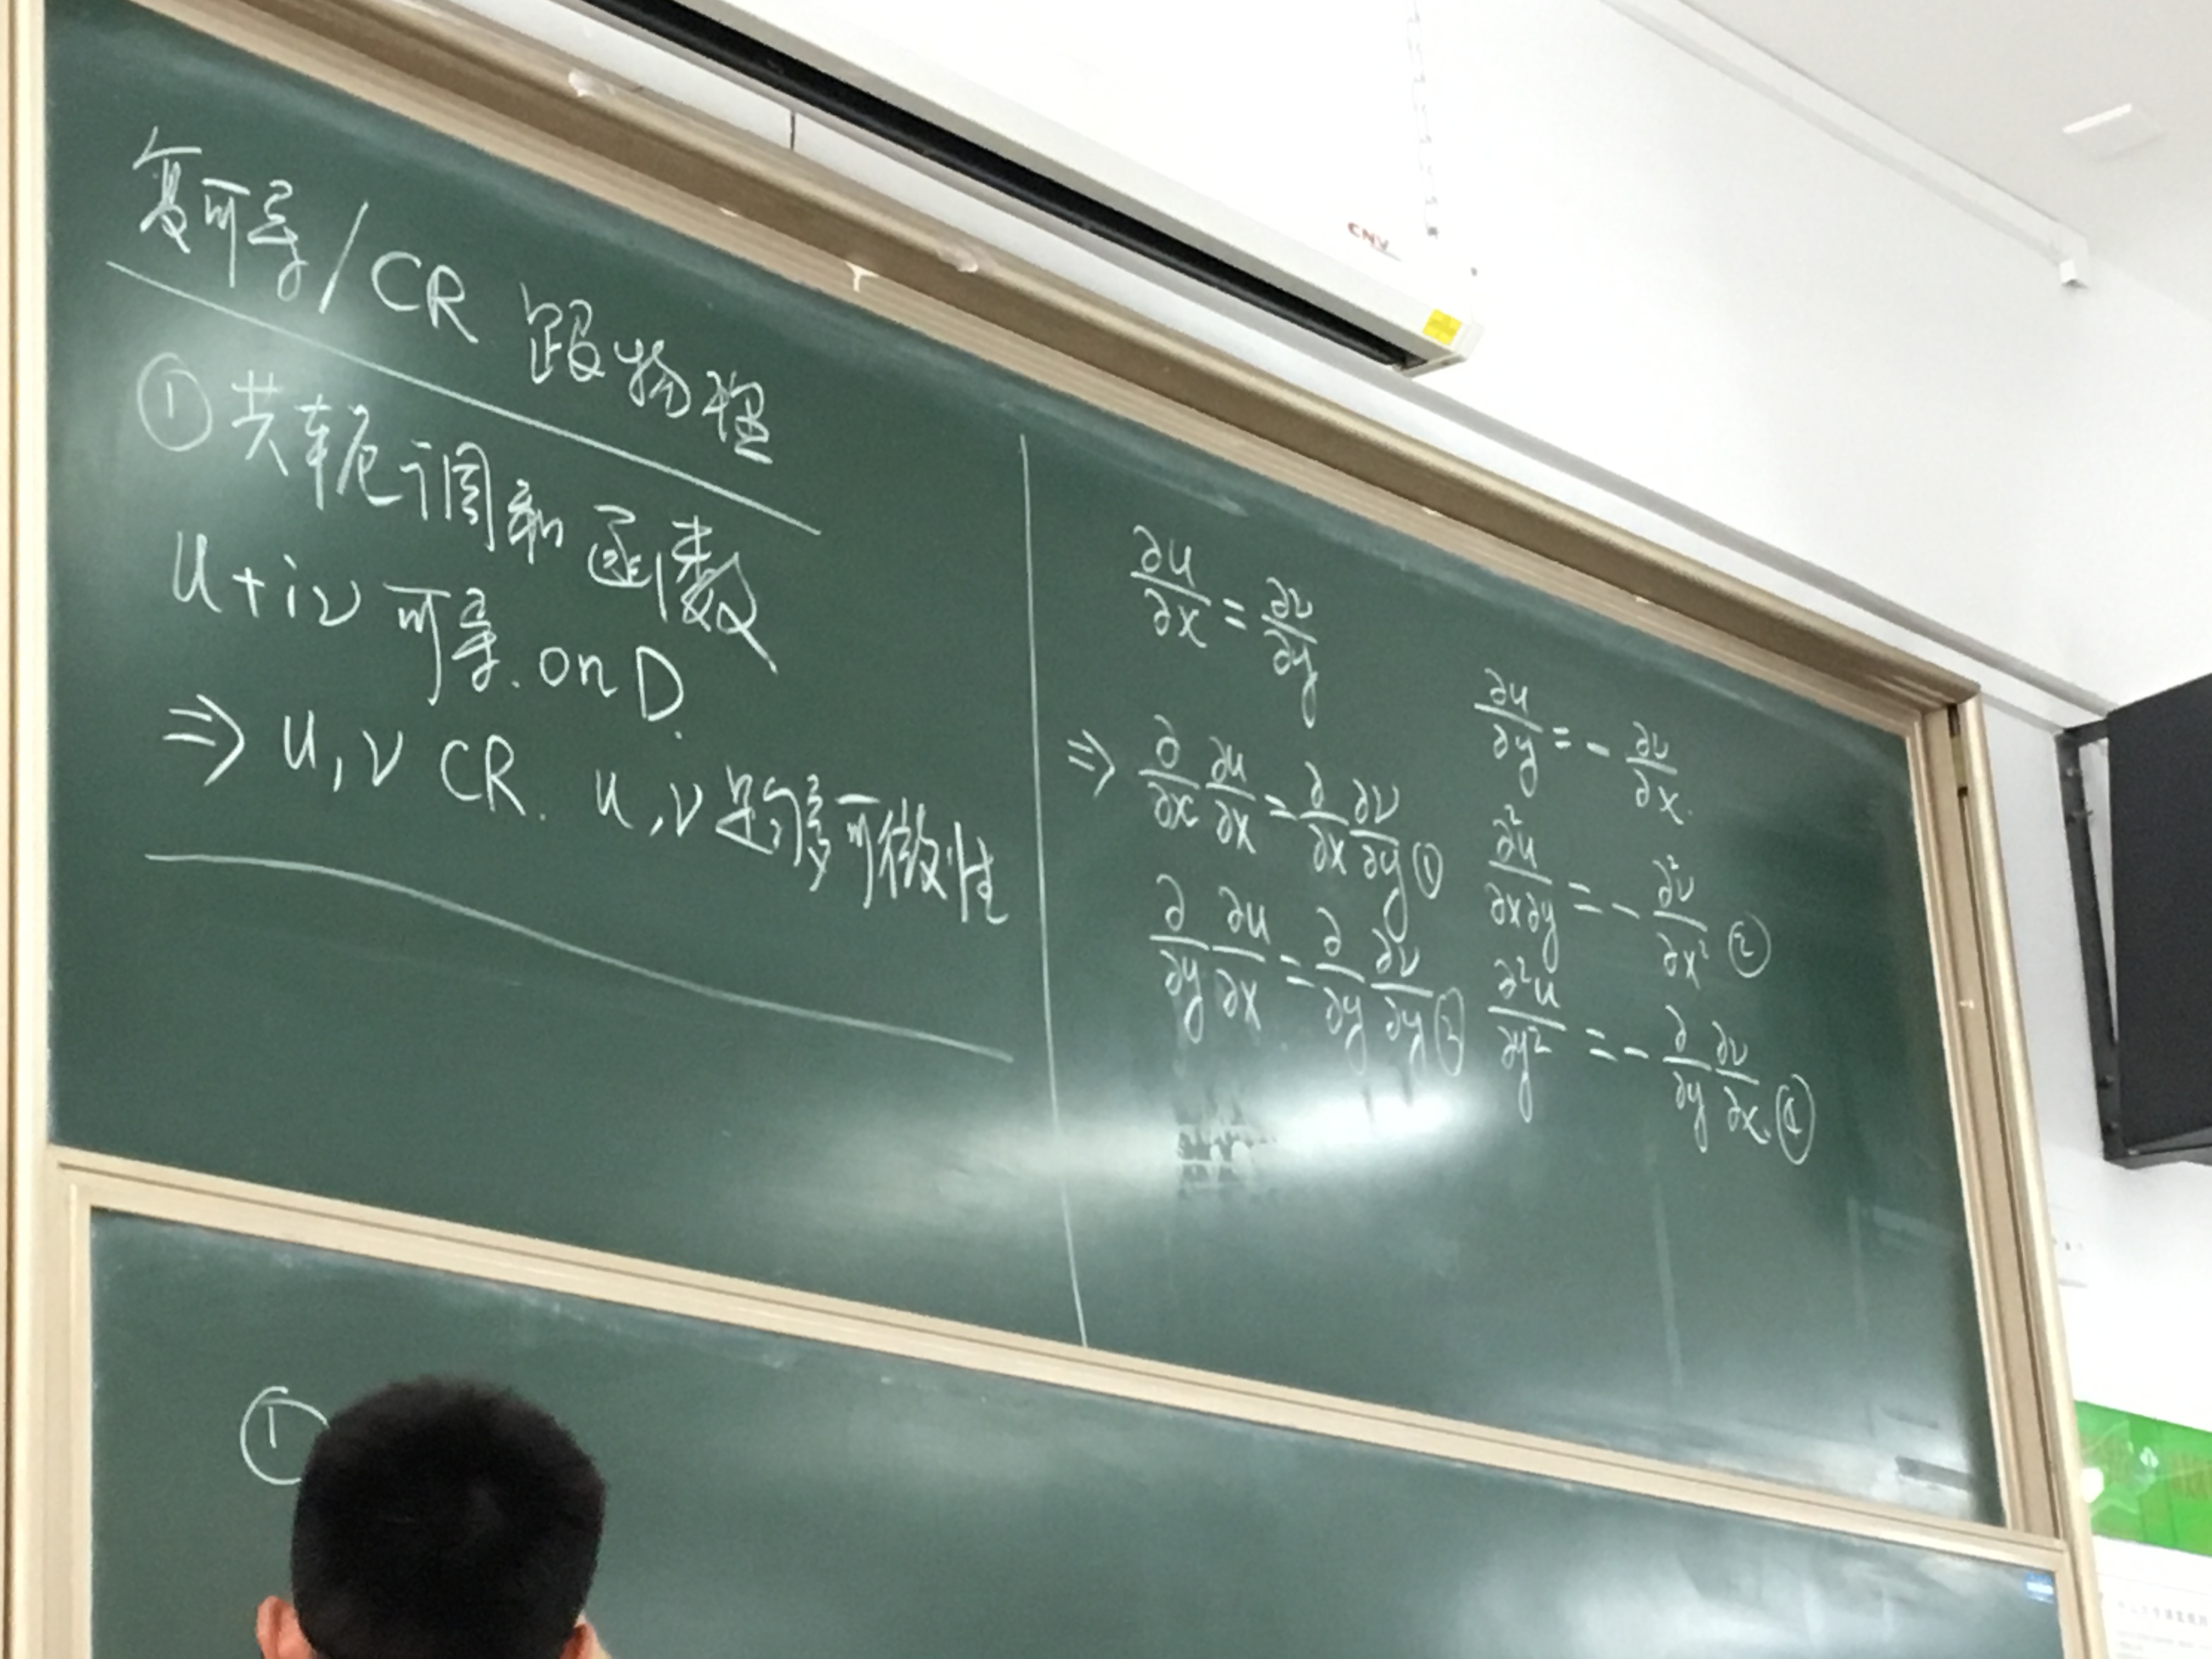 复可导/CR 跟物理
① 共轭调和函数
u+iv 可导. on D.
⇒ u,v CR. u,v 足够可微性
∂u/∂x = ∂v/∂y
∂u/∂y = - ∂v/∂x.
⇒ ∂/∂x ∂u/∂x = ∂/∂x ∂v/∂y ①
∂²u/∂x∂y = - ∂²v/∂x² ②
∂/∂y ∂u/∂x = ∂/∂y ∂v/∂y ③
∂²u/∂y² = - ∂/∂y ∂v/∂x. ④
①
CNV